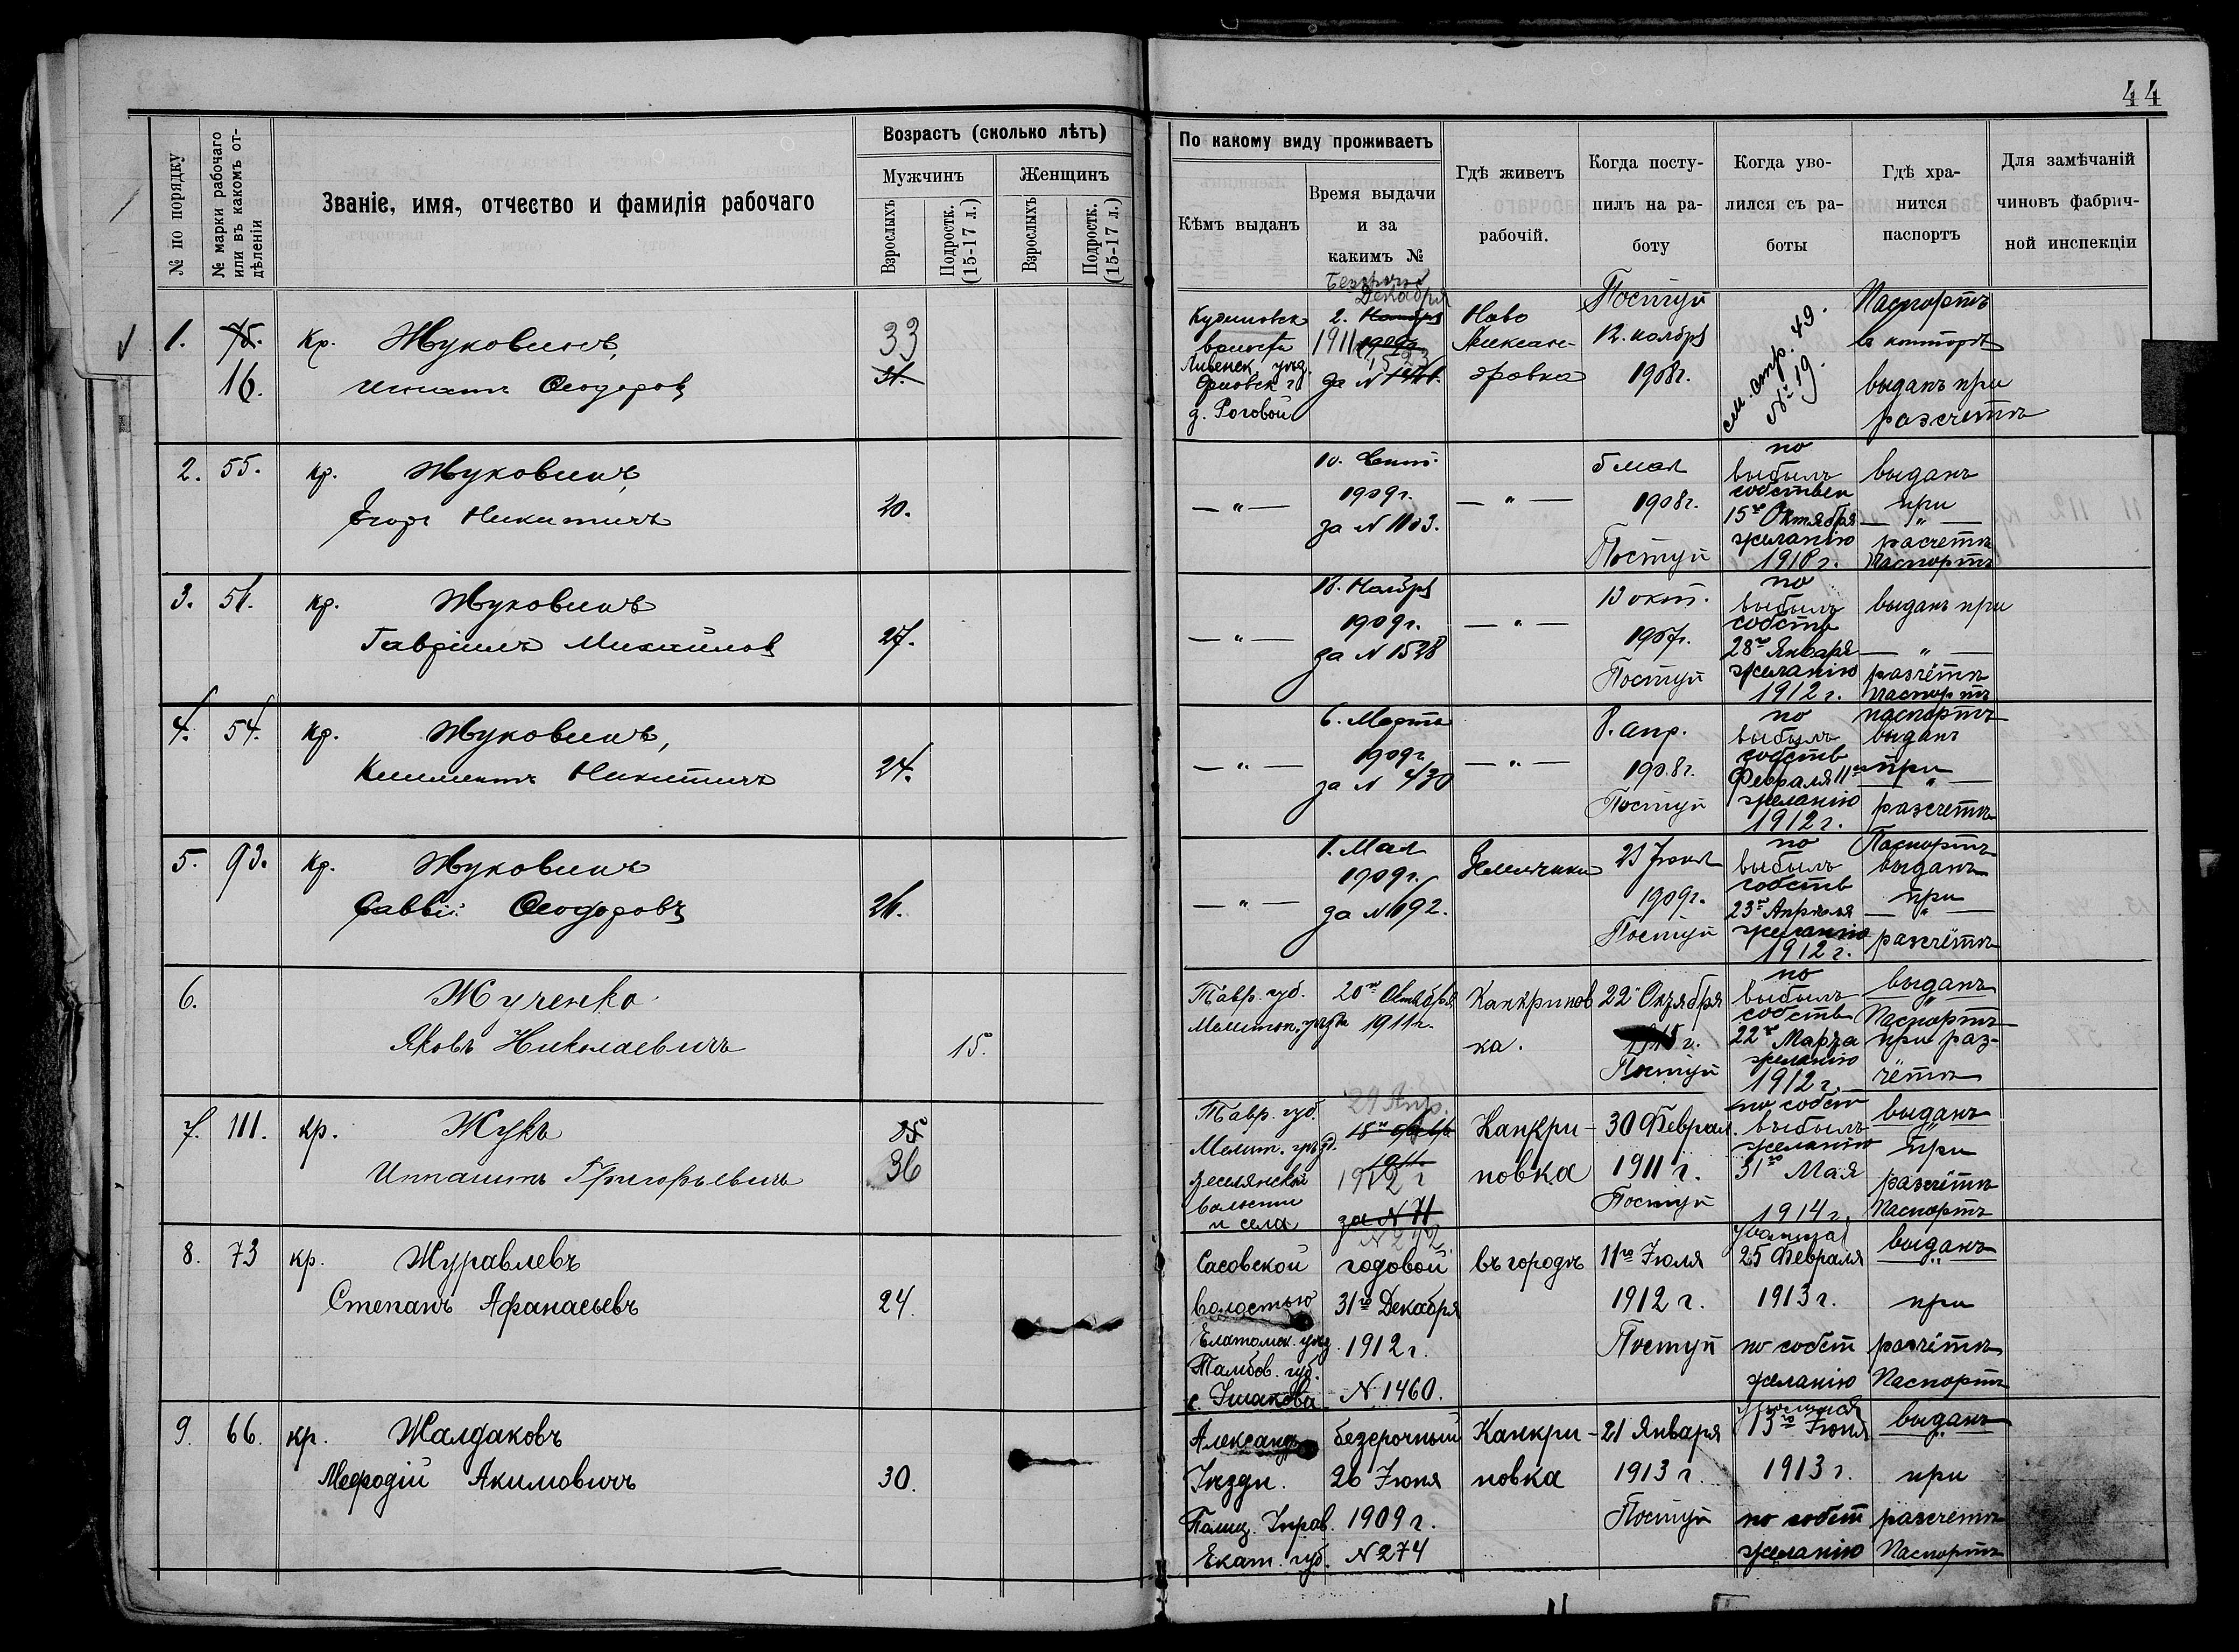 44
№ по порядку
№ марки рабочаго или въ какомъ отдѣленіи
Званіе, имя, отчество и фамилія рабочаго
Возрастъ (сколько лѣтъ)
Мужчинъ
Женщинъ
Взрослыхъ
Подростк. (15-17 л.)
Взрослыхъ
Подростк. (15-17 л.)
По какому виду проживаетъ
Кѣмъ выданъ
Время выдачи и за какимъ №
Гдѣ живетъ рабочій.
Когда поступилъ на работу
Когда уволился съ работы
Гдѣ хранится паспортъ
Для замѣчаній чиновъ фабричной инспекціи
1.
16.
Кр. Жуковинъ,
Игнатъ Ѳеодоров
33
31.
волости
Ливенск. уѣзд.
Орловск. г.
д. Роговой
Декабря
2. Ноября
1911 1909
Ново
Александровка
Поступ
12. ноября
1908 г.
см. стр. 49.
№ 19.
Паспортъ
в конторѣ
выданъ при
разсчетѣ
2. 55. кр. Жуковинъ,
Егоръ Никитичъ
20.
— " —
10. Сент.
1909 г.
за N 1103.
— " —
5 мая
1908 г.
Поступ
по
выбылъ
собствен
15го Октября
желанію
1910 г.
выданъ
при
— " —
расчетѣ
Паспортъ
3. 51. кр. Жуковинъ
Гавріилъ Михайлов
27.
— " —
18. Ноября
1909 г.
за N 1528
— " —
13 окт.
1907 г.
Поступ
по
выбылъ
собств
28го Января
желанію
1912 г.
выданъ при
— " —
разчётѣ
паспортъ
4. 54. кр. Жуковинъ,
Климентъ Никитичъ
24.
— " —
6. Марта
1909 г
за N 430
— " —
8. апр.
1908 г.
Поступ
по
выбылъ
собств
Февраля 11го
желанію
1912 г.
паспортъ
выданъ
при
— " —
разсчетѣ
5. 93. кр. Жуковинъ
Саввій Ѳеодоровъ
26.
— " —
1. Мая
1909 г.
за N 692.
Землянки
23 Іюня
1909 г.
Поступ
по
выбылъ
собств
23го Апрѣля
желанію
1912 г.
Паспортъ
выданъ
при
— " —
разчётѣ
6. Жученко
Яковъ Николаевичъ
15.
Тавр. губ.
Мелитоп. уѣзда
20го Октября
1911 г.
Канкринов
ка.
22го Октября
Поступ
по
выбылъ
собств
22го Марта
желанію
1912 г.
выданъ
Паспортъ
при раз-
чётѣ
7. 111. кр. Жукъ
Ипполитъ Григорьевичъ
35
36
Тавр. губ.
Мелит. уѣзд.
волости
и села
29 Апр.
1911
1912 г
за N 71
N 242.
Канкри-
новка
30 Феврал.
1911 г.
Поступ
по собст
выбылъ
желанію
31го Мая
1914 г.
выданъ
при
разчётѣ
Паспортъ
8. 73 кр. Журавлевъ
Степанъ Афанасьевъ
24.
Сасовской
волостью
Елатомск. уѣзд.
Тамбов. губ.
с. Ушакова
годовой
31го Декабря
1912 г.
N 1460.
въ городѣ
11го Іюля
1912 г.
Поступ
Уволился
25 Февраля
1913 г.
по собст
желанію
выданъ
при
разчётѣ
Паспортъ
9. 66. кр. Жалдаковъ
Меѳодій Акимовичъ
30.
Александр
Уѣздн.
Полиц. Управ.
Екат. губ.
безсрочный
26 Іюня
1909 г.
N 274
Канкри-
новка
21 Января
1913 г.
Поступ
Уволился
13го Іюня
1913 г.
по собст
желанію
выданъ
при
разсчетѣ
Паспортъ